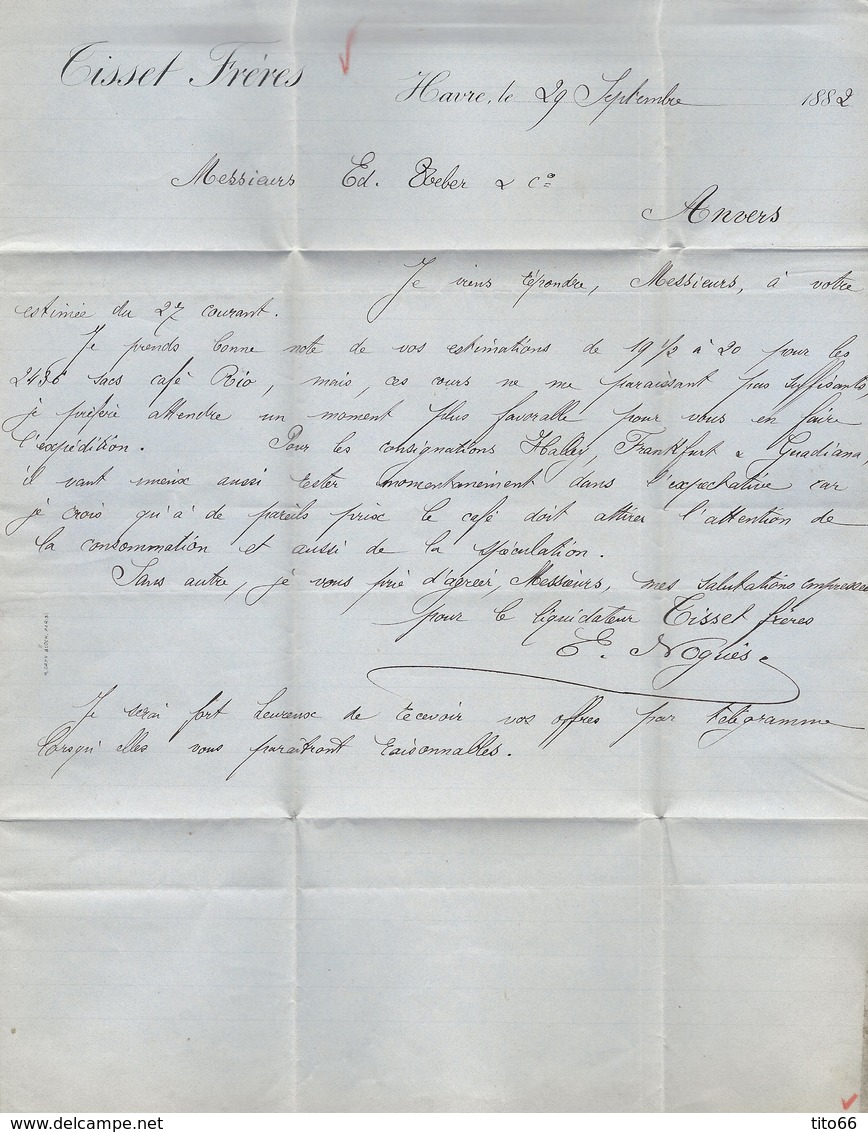 Tisset Frères
Havre, le 29 Septembre 1882
Messieurs Ed. Weber & Cº
Anvers
Je viens répondre, Messieurs, à votre
estimée du 27 courant.
Je prends bonne note de vos estimations de 19 1/2 à 20 pour les
2436 sacs café Rio, mais, ces cours ne me paraissant pas suffisants
je préfère attendre un moment plus favorable pour vous en faire
l'expédition. Pour les consignations Halley, Frankfurt & Guadiana
il vaut mieux aussi rester momentanément dans l'expectative car
je crois qu'à de pareils prix le café doit attirer l'attention de
la consommation et aussi de la spéculation.
Sans autre, je vous prie d'agréer, Messieurs, mes salutations empressées
pour le liquidateur Tisset frères
E. Noguès
Je serai fort heureux de recevoir vos offres par télégramme
lorsqu'elles vous paraîtront raisonnables.
delcampe.net
tito66